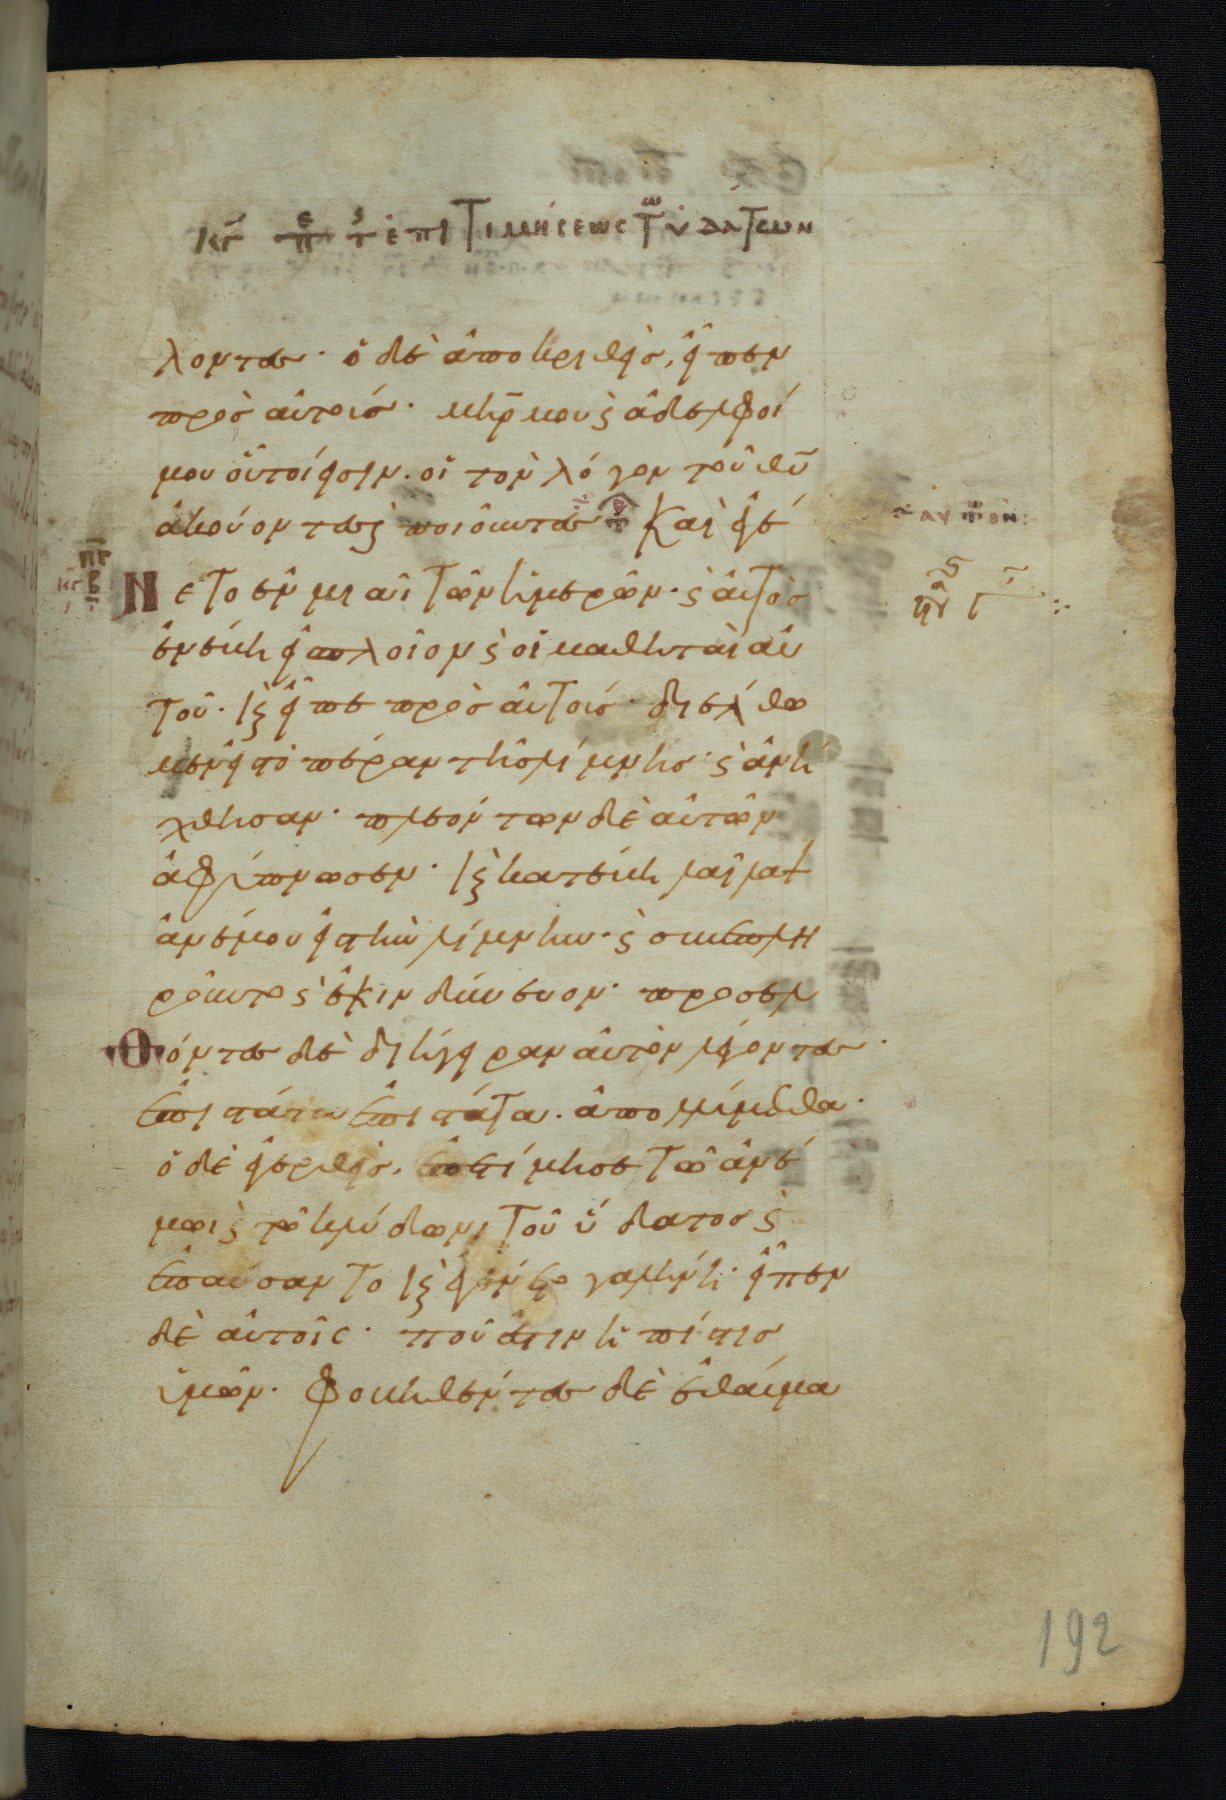 κγ περι τ επιτιμήσεως τῶν ὑδάτων
λοντες· ὁ δὲ ἀποκριθεὶς, εἶπεν
πρὸς αὐτούς· μηρ̄ μου ϛ ἀδελφοί
μου οὗτοί εἰσιν· οἱ τὸν λόγον τοῦ θῡ
ἀκούοντες ϛ ποιοῦντες Καὶ ἐγέ
νετο ἐν μιᾶ τῶν ἡμερῶν· ϛ αὐτὸς
ἐνέβη εἰς πλοῖον ϛ οἱ μαθηταὶ αὐ
τοῦ· κϛ εἶπε πρὸς αὐτούς· διέλθω
μεν εἰς τὸ πέραν τῆς λίμνης· ϛ ἀνή
χθησαν· πλεόντων δὲ αὐτῶν
ἀφύπνωσεν· κϛ κατέβη λαῖλαψ
ἀνέμου εἰς τὴν λίμνην· ϛ συνεπλη
ροῦντο ϛ ἐκινδύνευον· προσελ
θόντες δὲ διήγειραν αὐτὸν λέγοντες·
ἐπιστάτα ἐπιστάτα· ἀπολλύμεθα·
ὁ δὲ ἐγερθεὶς, ἐπετίμησε τῶ ἀνέ
μω ϛ τῶ κλύδωνι τοῦ ὕδατος ϛ
ἐπαύσαντο κϛ ἐγένετο γαλήνη· εἶπεν
δὲ αὐτοῖς· ποῦ ἐστιν ἡ πίστις
ὑμῶν· φοβηθέντες δὲ ἐθαύμα
192